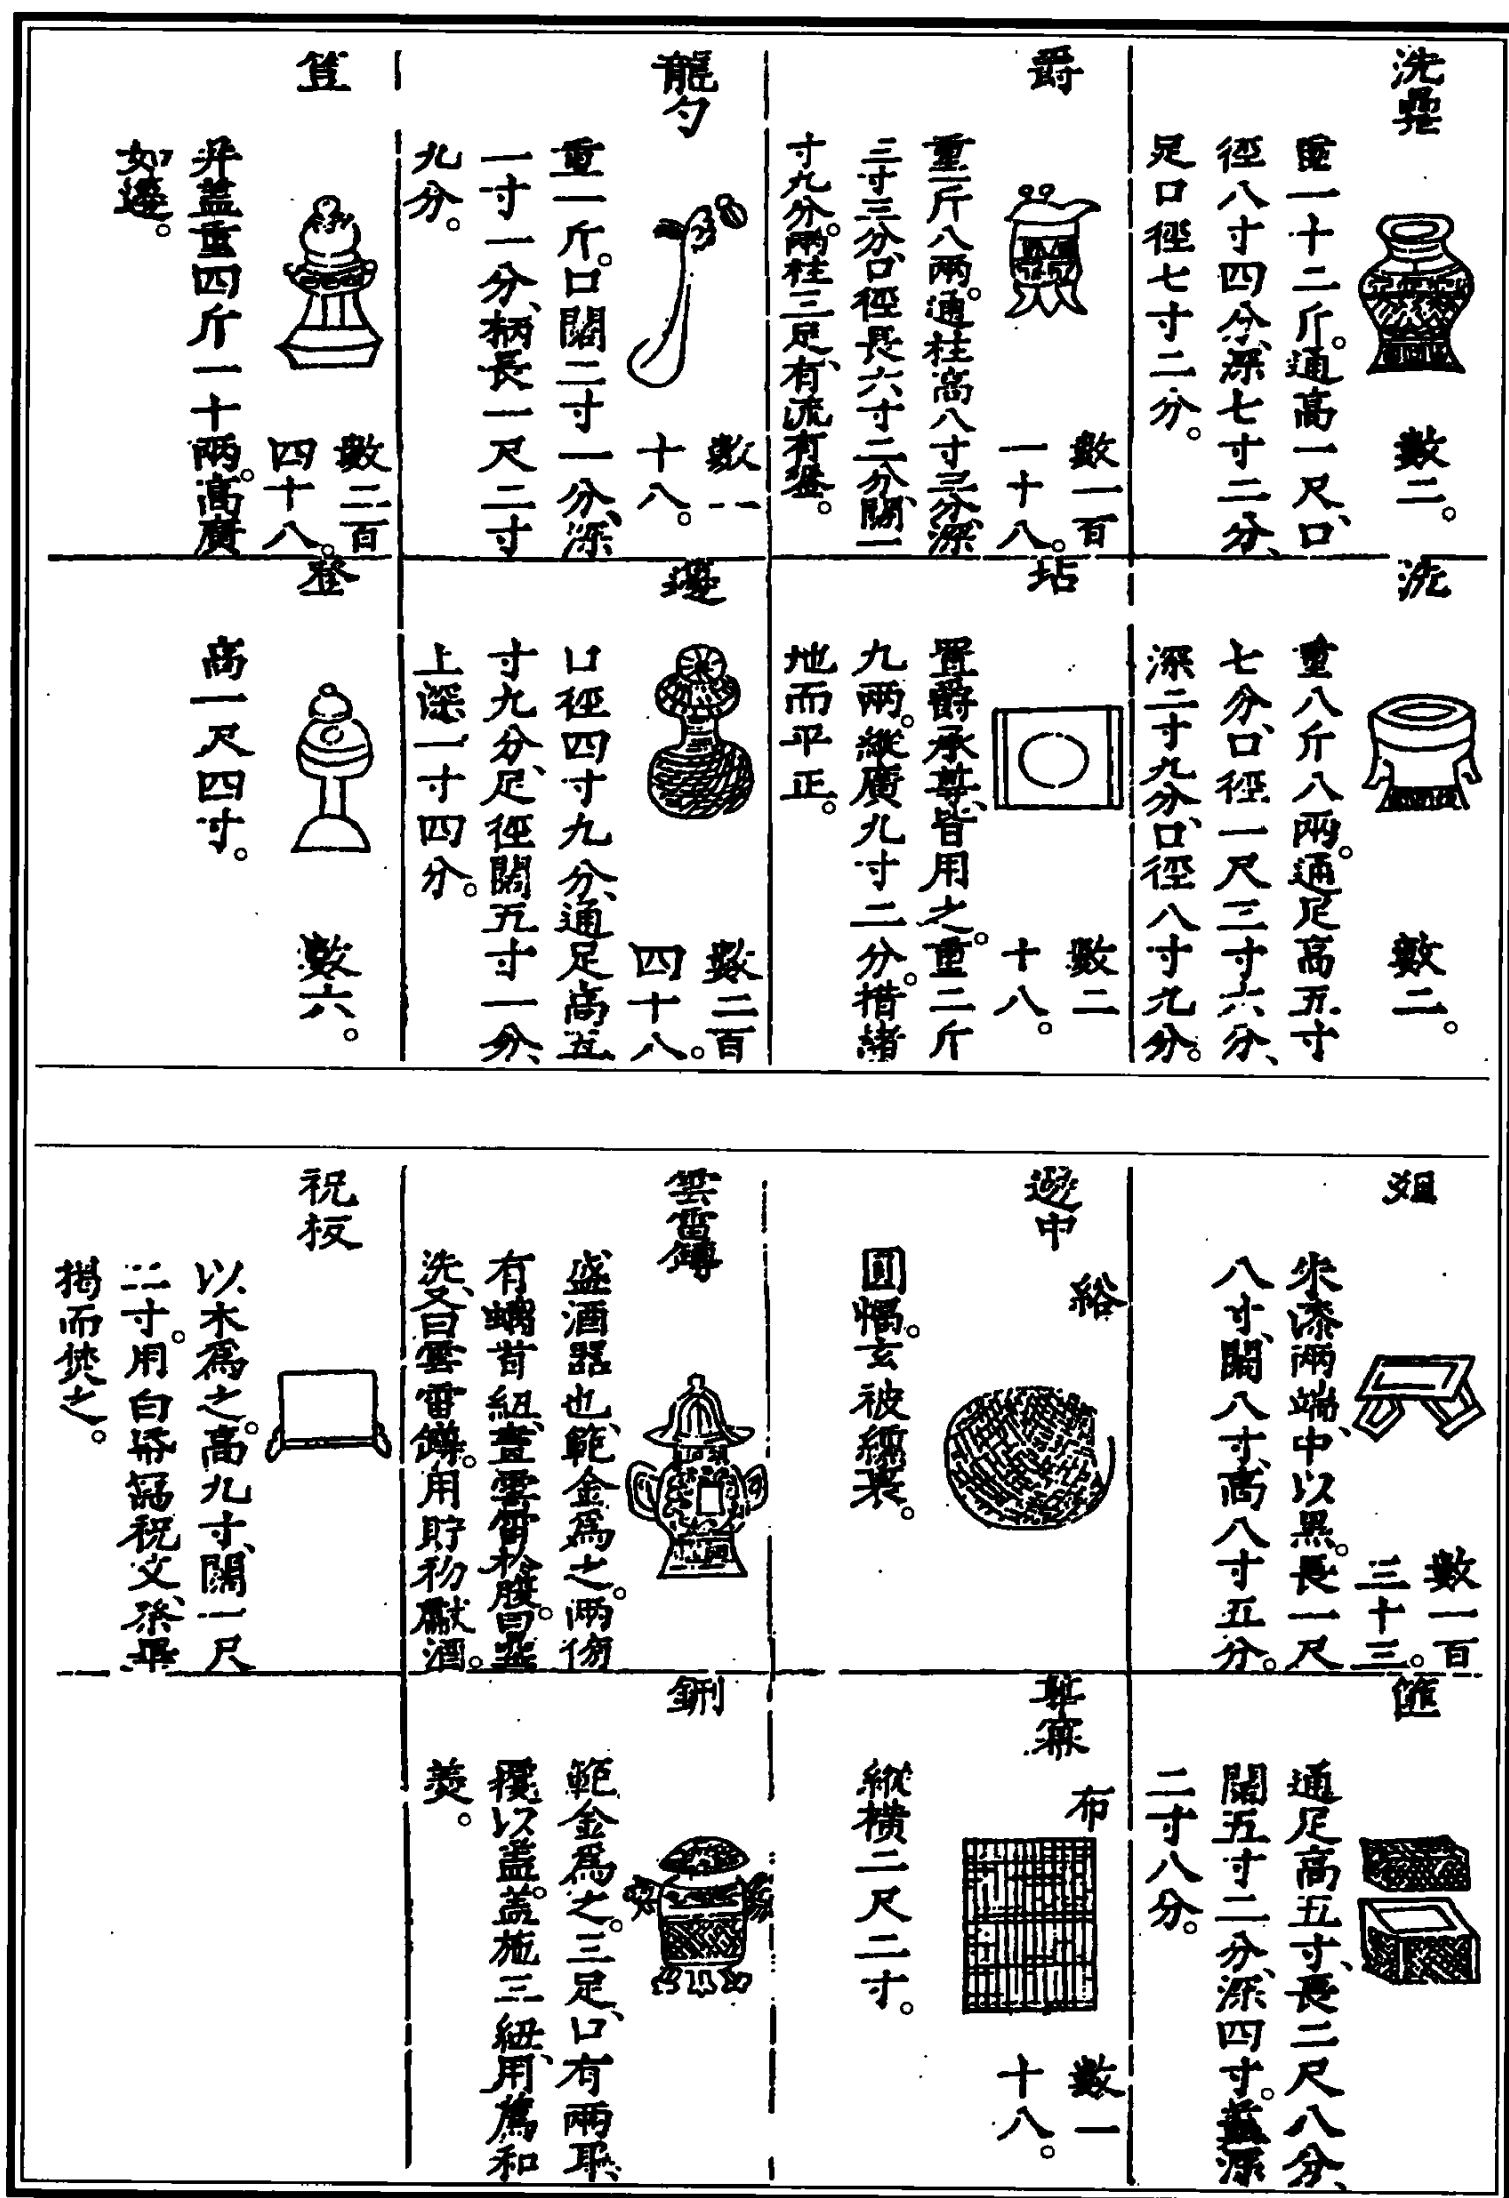 洗罍
數二。
重一十二斤。通高一尺、口
徑八寸四分、深七寸二分、
足口徑七寸二分。
洗
數二。
重八斤八兩。通足高五寸
七分、口徑一尺三寸六分、
深二寸九分、口徑八寸九分。
爵
數一百
一十八。
重一斤八兩。通柱高八寸三分、深
三寸三分、口徑長六寸二分、闊一
寸九分。兩柱三足、有流有鋬。
坫
數二
十八。
置爵承尊、皆用之。重二斤
九兩。縱廣九寸二分。措諸
地而平正。
龍勺
數一
十八。
重一斤。口闊二寸一分、深
一寸一分、柄長一尺二寸
九分。
籩
數二百
四十八。
口徑四寸九分、通足高五
寸九分、足徑闊五寸一分、
上深一寸四分。
豆
數二百
四十八。
并蓋重四斤一十兩。高廣
如籩。
登
數六。
高一尺四寸。
俎
數一百
三十三。
朱漆兩端、中以黑。長一尺
八寸、闊八寸、高八寸五分。
篚
通足高五寸、長二尺八分、
闊五寸二分、深四寸。蓋深
二寸八分。
籩巾
綌
圓幅。玄被纁裏。
尊冪
布
數一
十八。
縱橫二尺二寸。
雲雷罇
盛酒器也、範金爲之。兩傍
有螭首紐、畫雲雷於腹。曰罍
洗、又曰雲雷罇。用貯初獻酒。
鉶
範金爲之。三足、口有兩耳、
覆以蓋。蓋施三紐、用薦和
羹。
祝板
以木爲之。高九寸、闊一尺
二寸。用白帋寫祝文、祭畢
揭而焚之。